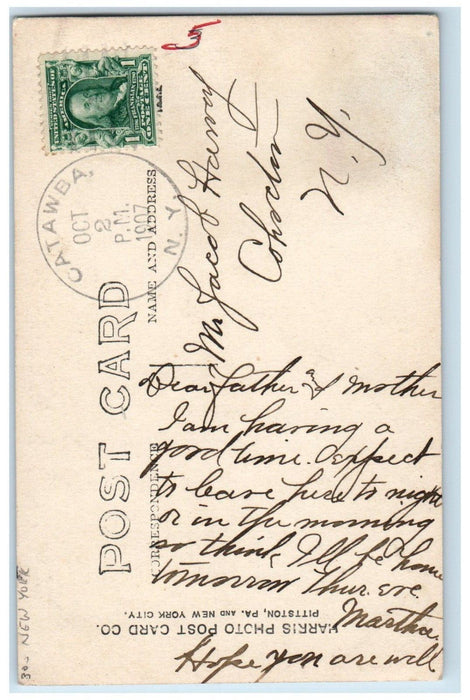 UNITED STATES OF AMERICA
1 POSTAGE 1
ONE CENT
CATAWBA,
OCT
2
P.M.
1907
N. Y.
POST CARD
NAME AND ADDRESS
CORRESPONDENCE
Mr. Jacob Harvey
Cohocton
N. Y.
Dear father & mother
I am having a
good time. expect
to leave here to night
or in the morning
so think I'll be home
tomorrow Thur. eve.
Martha
Hope you are well
HARRIS PHOTO POST CARD CO.
PITTSTON, PA. AND NEW YORK CITY.
NEW YORK